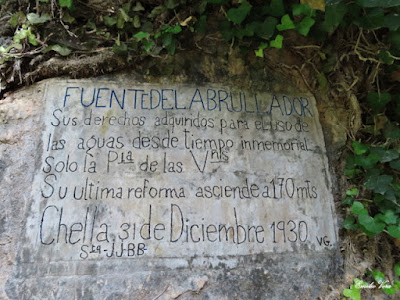 FUENTE DEL ABRULLADOR
Sus derechos adquiridos para el uso de
las aguas desde tiempo inmemorial
Solo la Pta de las Vnts
Su ultima reforma asciende a 170 mts
Chella, 31 de Diciembre 1930.
Sta-JJBB
VG.